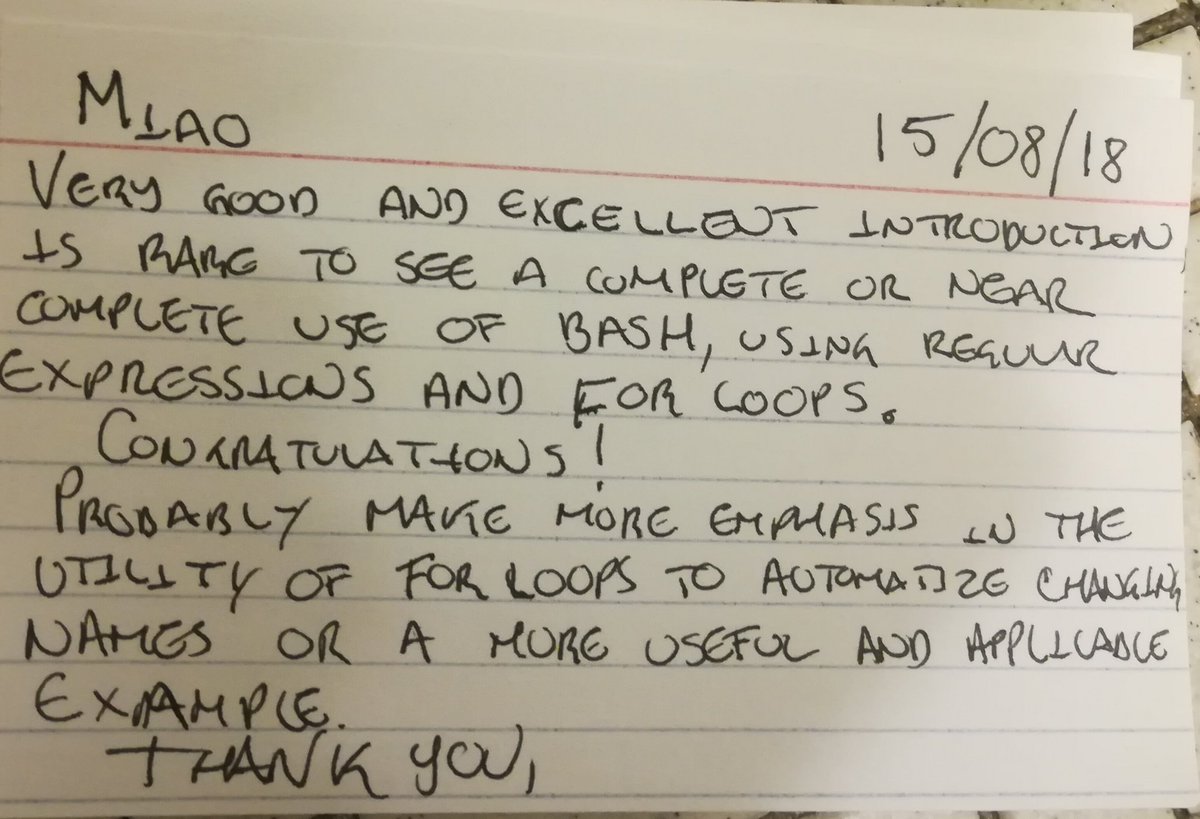 MIAO 15/08/18
VERY GOOD AND EXCELLENT INTRODUCTION,
IS RARE TO SEE A COMPLETE OR NEAR
COMPLETE USE OF BASH, USING REGULAR
EXPRESSIONS AND FOR LOOPS.
CONGRATULATIONS!
PROBABLY MAKE MORE EMPHASIS IN THE
UTILITY OF FOR LOOPS TO AUTOMATIZE CHANGING
NAMES OR A MORE USEFUL AND APPLICABLE
EXAMPLE.
THANK YOU,